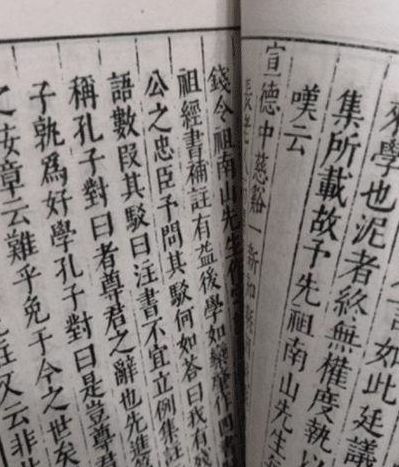 之言如此廷議
來學也泥者終無權度執以
集所載故予先祖南山先生
嘆云
宣德中慈谿一新知縣
錢令祖南山先生作
祖經書補註有益後學如欒肇作四書
公之忠臣予問其駁何如答曰我有
語數段其駁曰注書不宜立例集註
稱孔子對曰者尊君之辭也先進篇
子孰爲好學孔子對曰是豈尊君
之按章云難乎免于今之世矣
註又云非